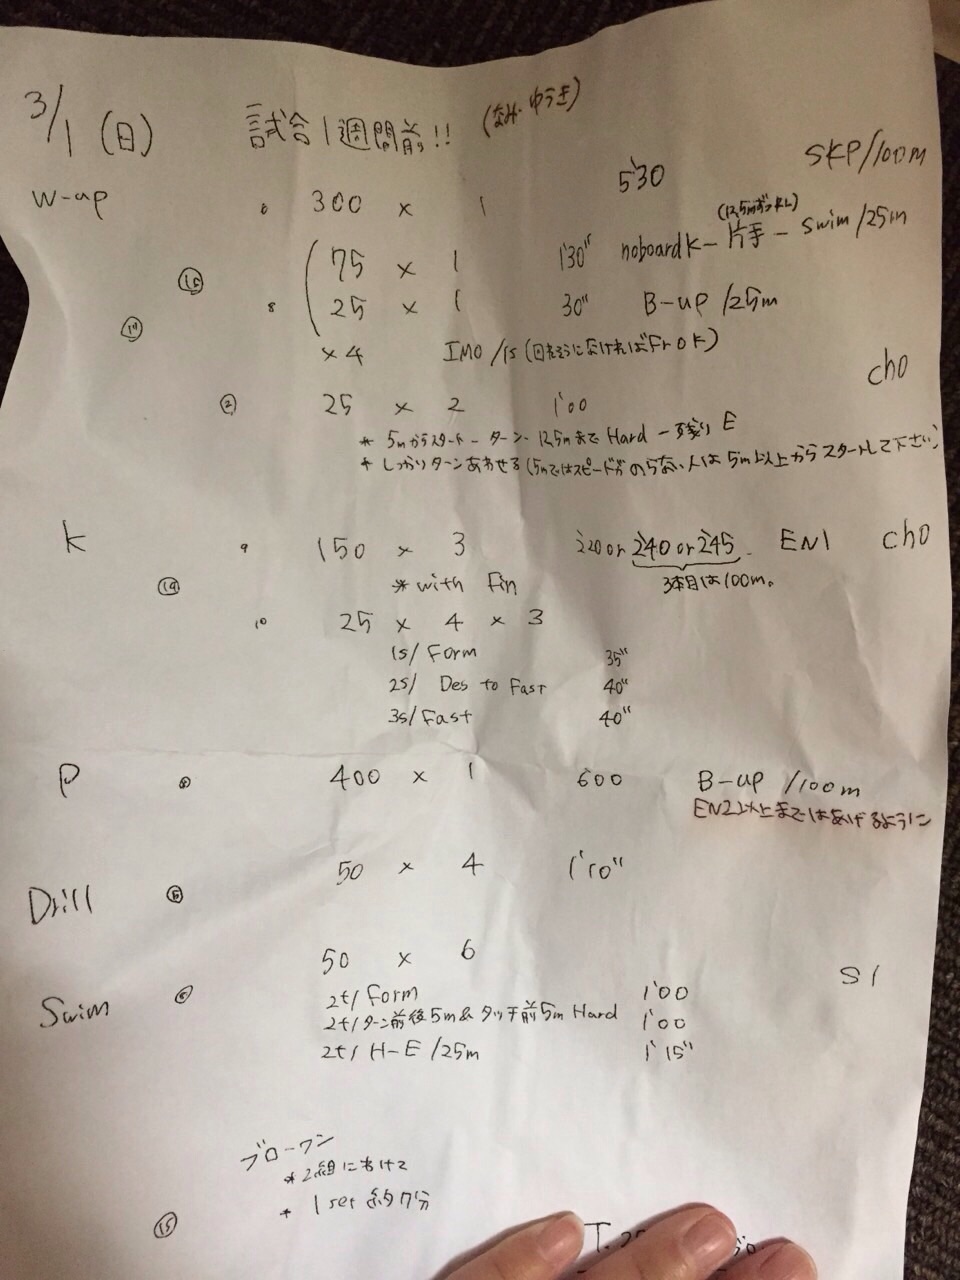 3/1 (日) 試合1週間前!! (なみ・ゆうき)
5'30 SKP/100m
W-up 6 300 × 1
75 × 1 1'30" noboard K- 片手 - swim/25m
8 25 × 1 30" B-up /25m
×4 IMO /1s (回れそうになければFr O K)
② 25 × 2 1'00 cho
* 5mからスタート - ターン - 12.5mまで Hard - 残り E
* しっかりターンあわせる (5mではスピードがのらない人は5m以上からスタートして下さい)
K 9 150 × 3 2'20 or 2'40 or 2'45 EN1 cho
*with Fin 3本目は100m。
⑲
10 25 × 4 × 3
1s/ Form 35"
2s/ Des to Fast 40"
3s/ Fast 40"
P 400 × 1 6'00 B-up /100m
EN2以上まではあげるように
Drill 50 × 4 1'10"
50 × 6 S1
Swim 2t/ Form 1'00
2t/ ターン前後5m & タッチ前5m Hard 1'00
2t/ H-E /25m 1'15"
ブロークン
*2組にわけて
* 1set 約7分
⑮
T.